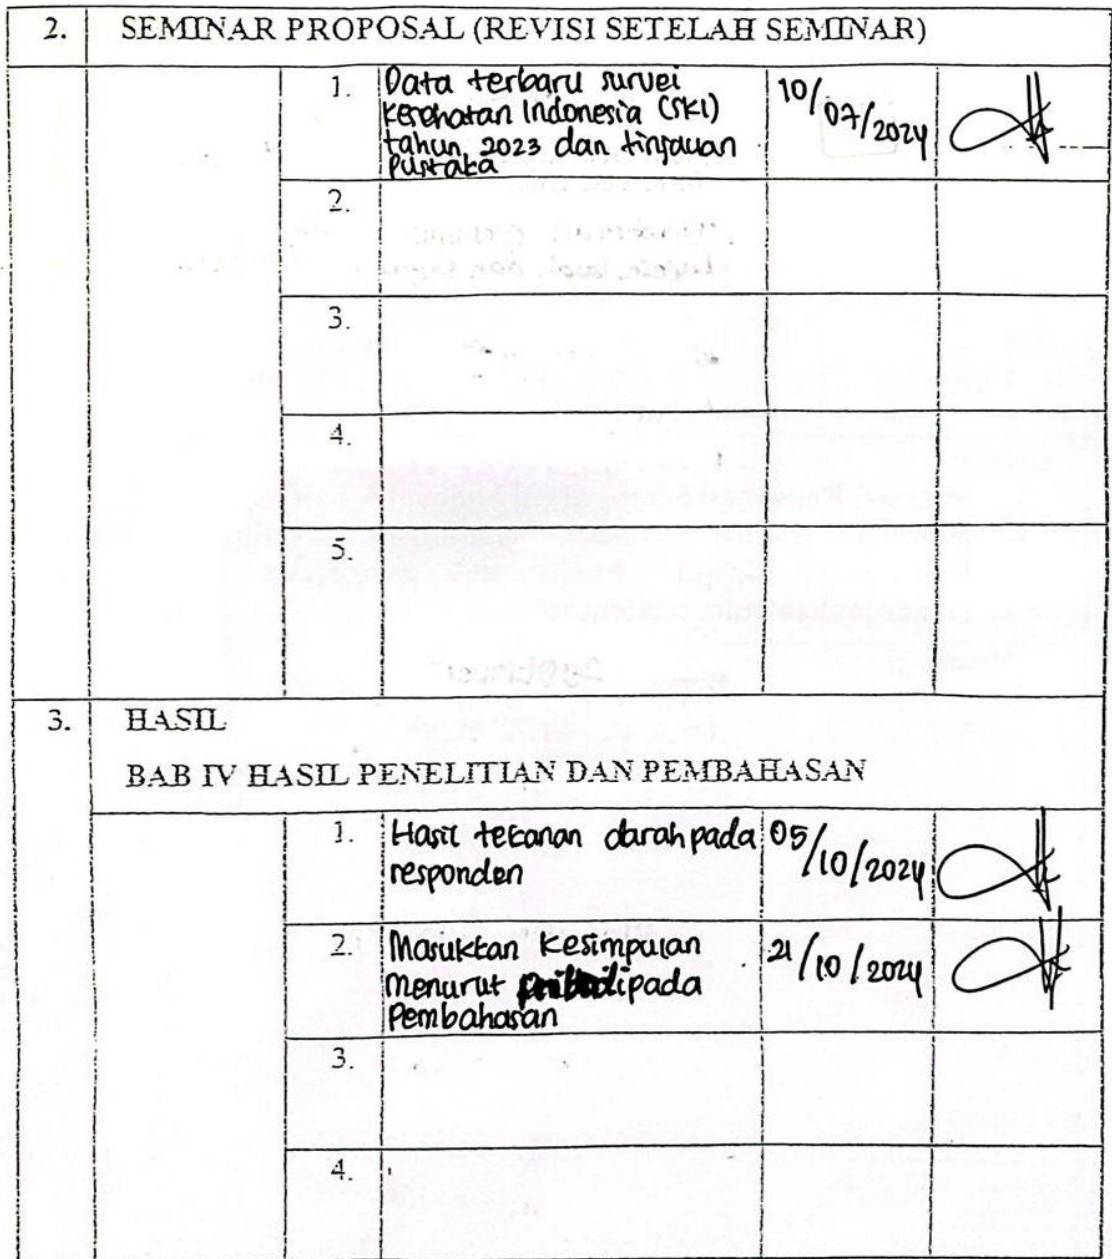 2. SEMINAR PROPOSAL (REVISI SETELAH SEMINAR)
1. Data terbaru survei
Kesehatan Indonesia (SKI)
tahun 2023 dan tinjauan
Pustaka
10/07/2024
2.
3.
4.
5.
3. HASIL
BAB IV HASIL PENELITIAN DAN PEMBAHASAN
1. Hasil tekanan darah pada
responden
05/10/2024
2. Masukkan Kesimpulan
Menurut pribadi pada
Pembahasan
21/10/2024
3.
4.